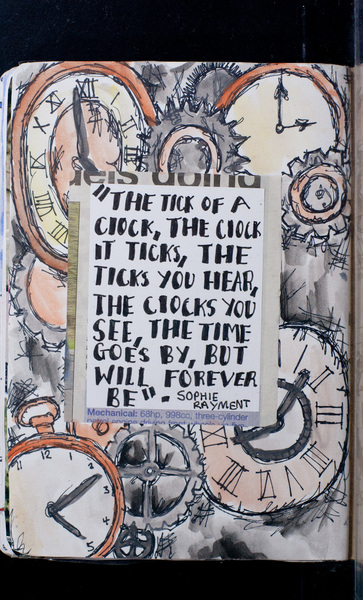 "THE TICK OF A
CLOCK, THE CLOCK
IT TICKS, THE
TICKS YOU HEAR,
THE CLOCKS YOU
SEE, THE TIME
GOES BY, BUT
WILL FOREVER
BE".
SOPHIE
RAYMENT
Mechanical: 68hp, 998cc, three-cylinder
XII
I
XI
X
IX
11
12
1
2
4
5